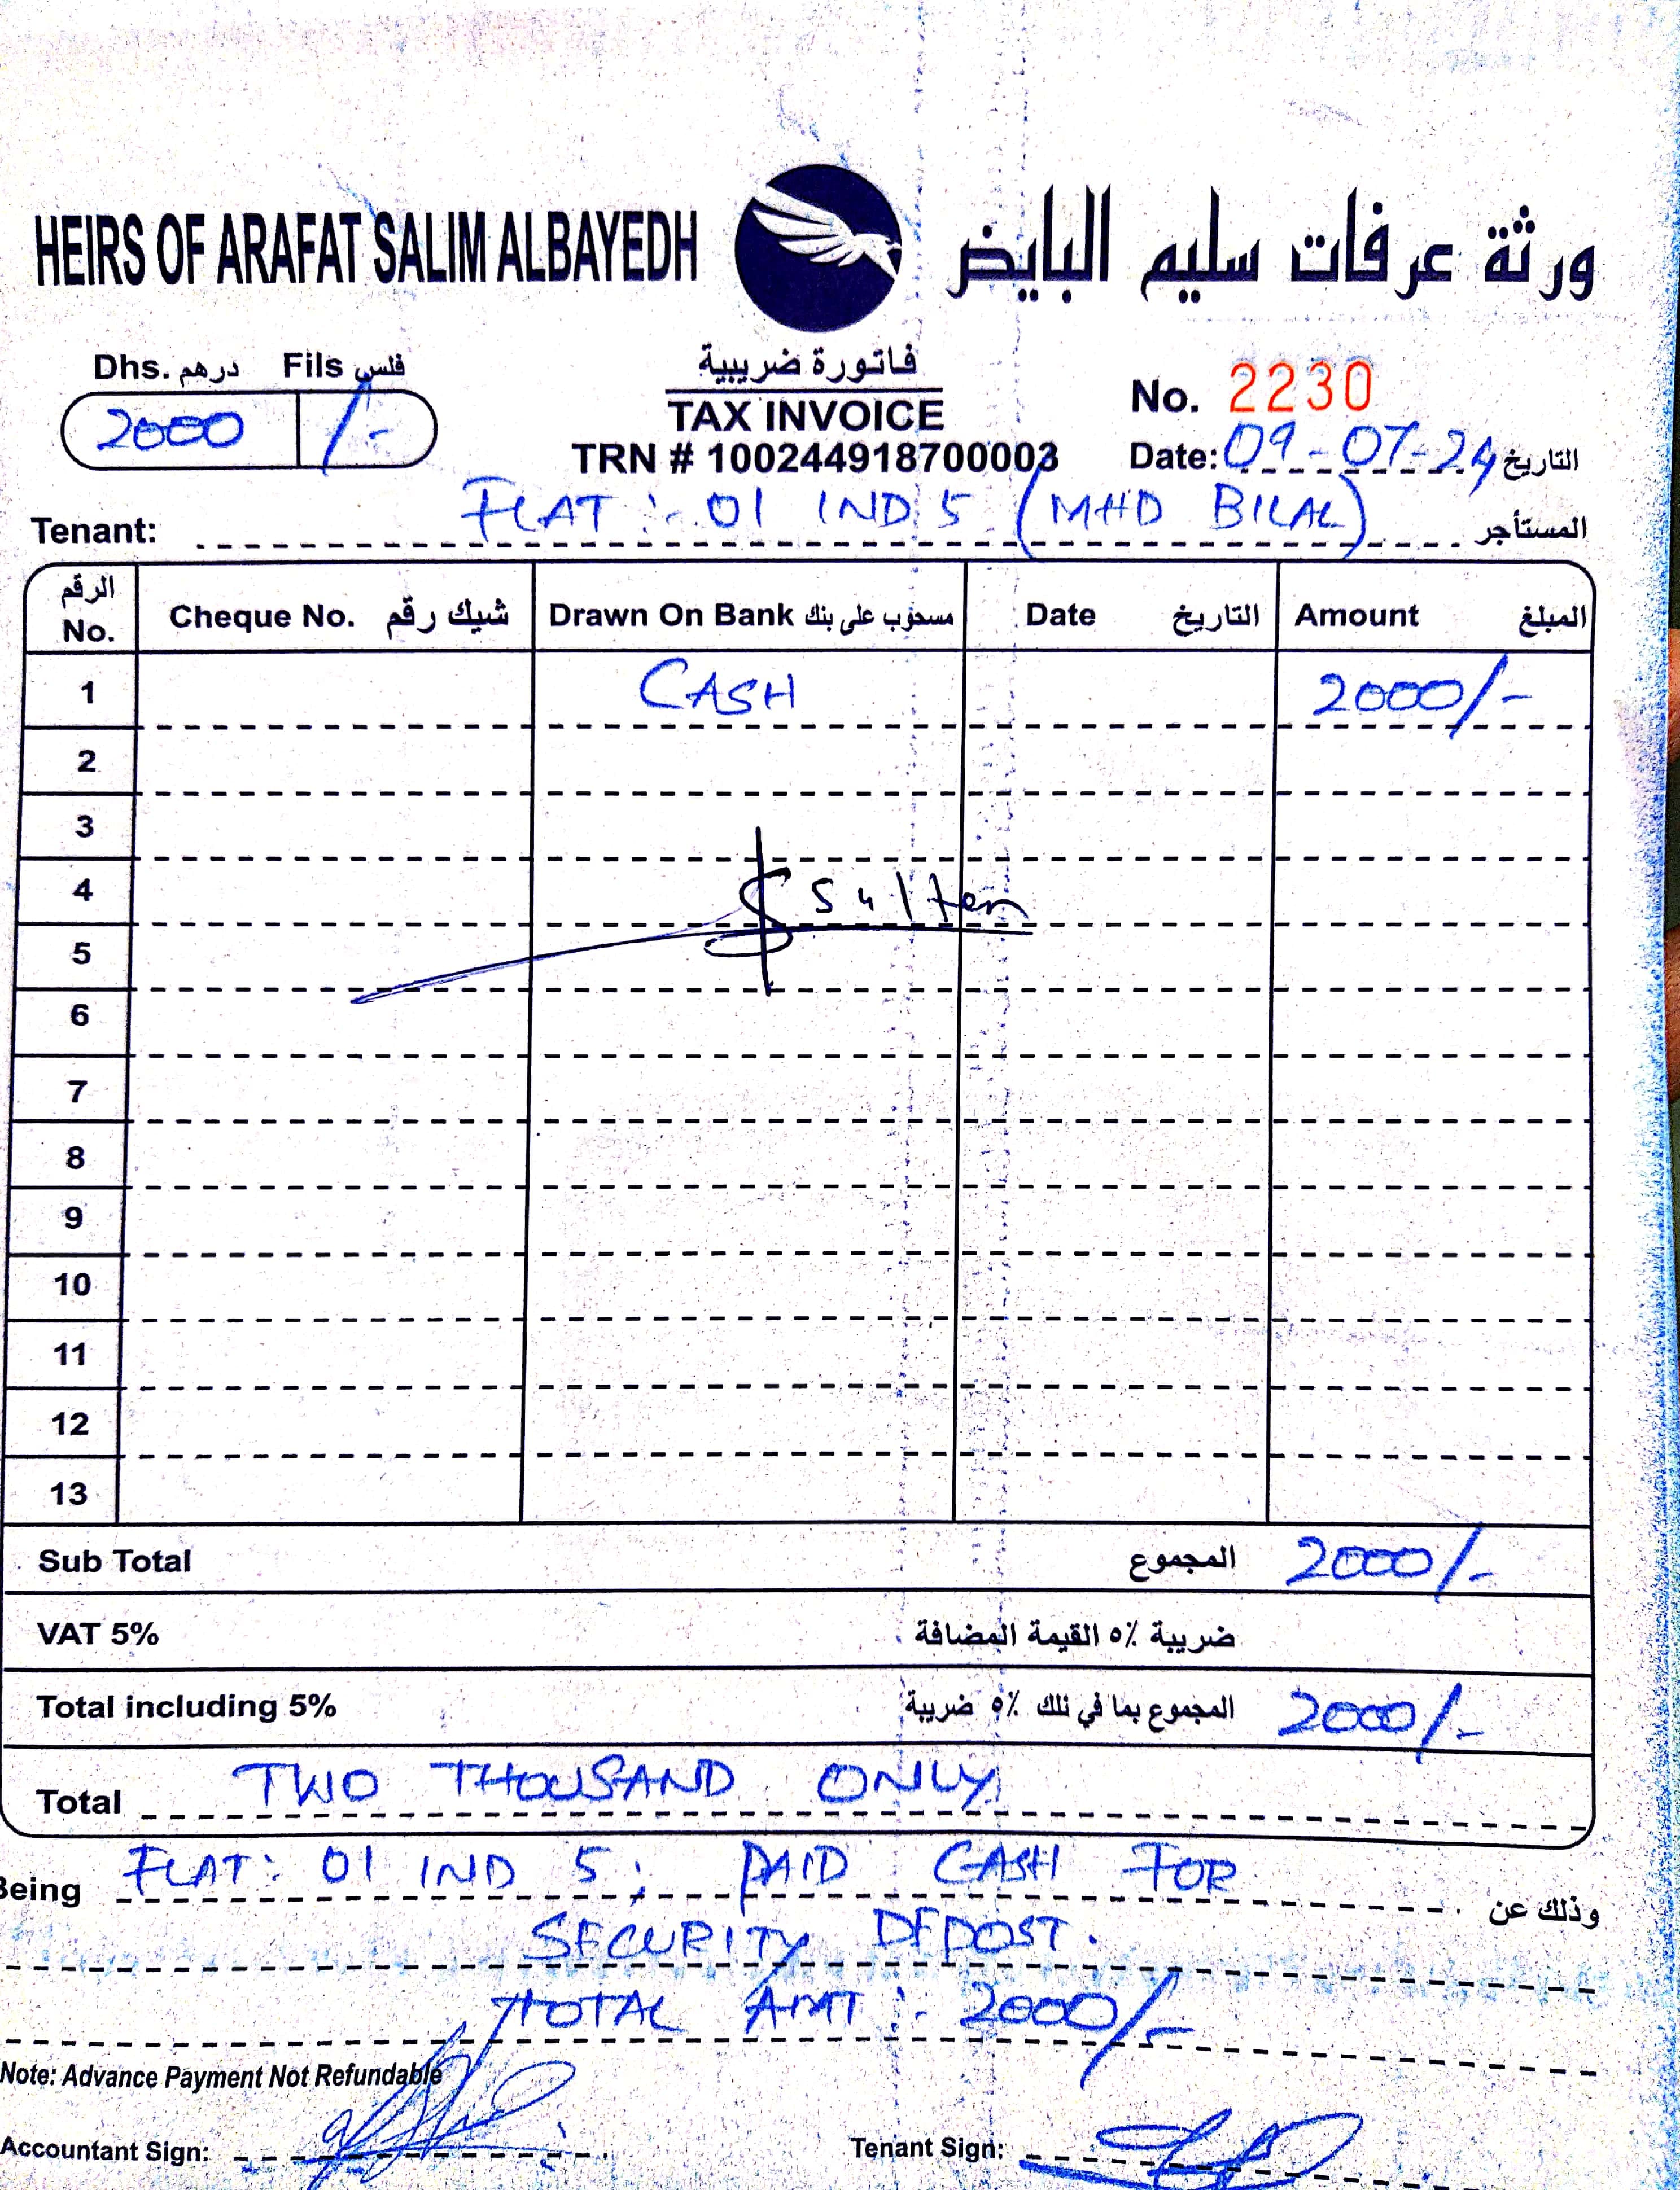 HEIRS OF ARAFAT SALIM ALBAYEDH ورثة عرفات سليم البايض
Dhs. درهم Fils فلس
2000 /-
فاتورة ضريبية
TAX INVOICE
TRN # 100244918700003
No. 2230
Date: 09-07-24 التاريخ
Tenant: FLAT :- 01 IND 5 (MHD BILAL) المستأجر
الرقم No. Cheque No. شيك رقم Drawn On Bank مسحوب على بنك Date التاريخ Amount المبلغ
1 CASH 2000/-
2
3
4
5
6
7
8
9
10
11
12
13
Sub Total المجموع 2000/-
VAT 5% ضريبة ٥٪ القيمة المضافة
Total including 5% المجموع بما في ذلك ٥٪ ضريبة 2000/-
Total TWO THOUSAND ONLY
Being FLAT: 01 IND 5; PAID CASH FOR وذلك عن
SECURITY DEPOST.
TOTAL AMT :- 2000/-
Note: Advance Payment Not Refundable
Accountant Sign: Tenant Sign: